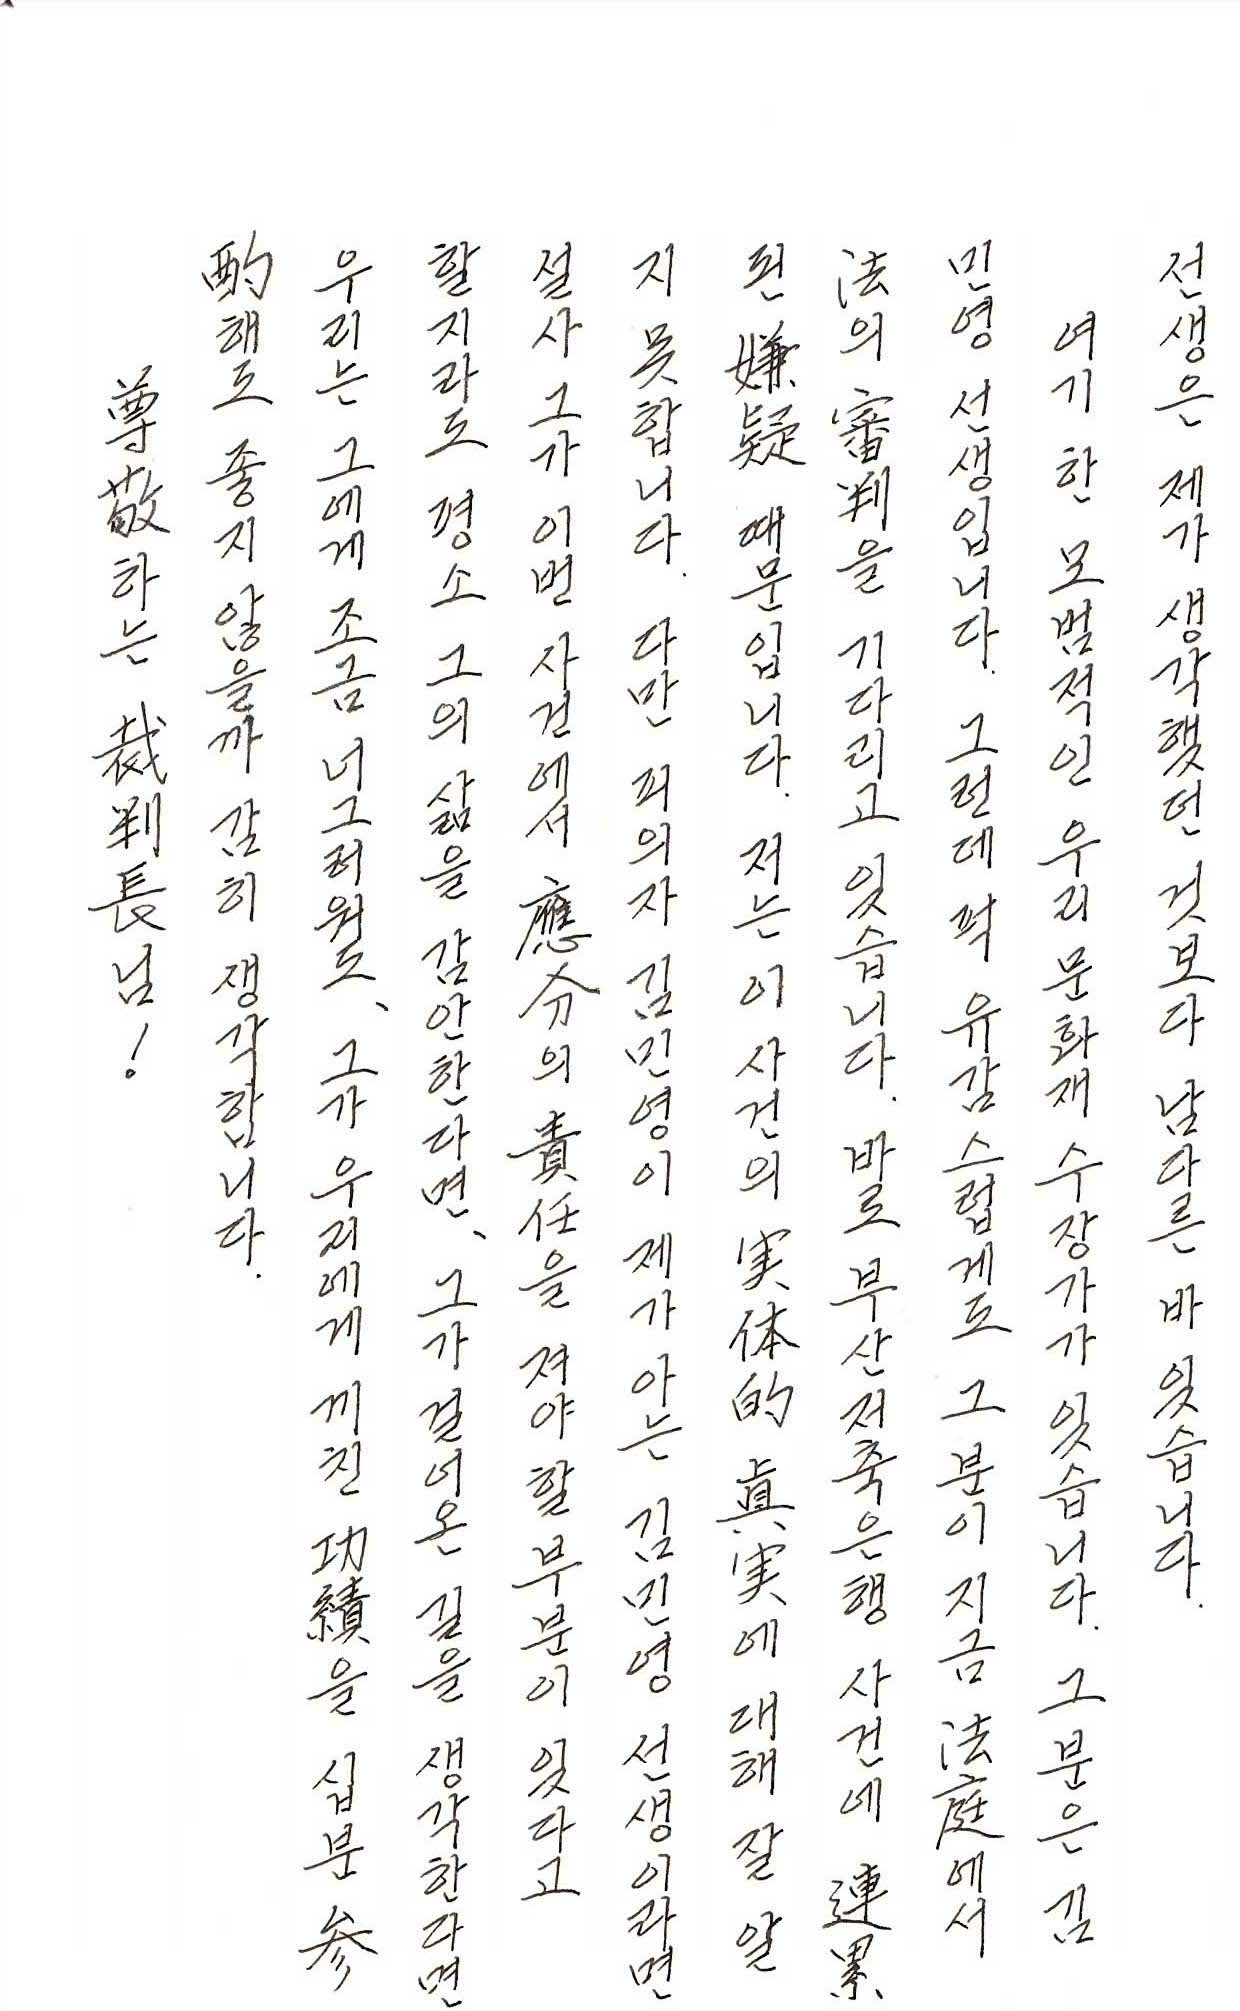 전생은 제가 생각했던 것보다 남다른 바 있습니다.
여기 한 모범적인 우리 문화재 수장가가 있습니다. 그분은 김
민영 선생입니다. 그런데 퍽 유감스럽게도 그분이 지금 法庭에서
法의 審判을 기다리고 있습니다. 바로 부산저축은행 사건에 連累
된 嫌疑 때문입니다. 저는 이 사건의 実体的 眞実에 대해 잘 알
지 못합니다. 다만 피의자 김민영이 제가 아는 김민영 선생이라면
설사 그가 이번 사건에서 應分의 責任을 져야 할 부분이 있다고
할지라도 평소 그의 삶을 감안한다면, 그가 걸어온 길을 생각한다면
우리는 그에게 조금 너그러워도, 그가 우리에게 끼친 功績을 십분 参
酌해도 좋지 않을까 감히 생각합니다.
尊敬하는 裁判長님!